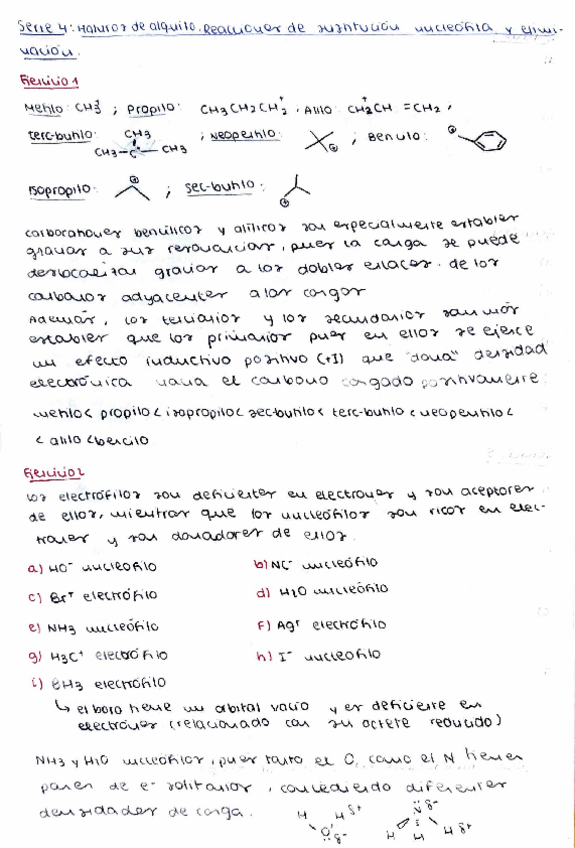 Serie 4: Haluros de alquilo. Reacciones de sustitución nucleófila y elimi-
nación.
Ejercicio 1
Metilo: CH3⁺ ; Propilo: CH3CH2CH2⁺ . Alilo: CH2⁺CH=CH2,
terc-butilo: CH3 ; Neopentilo: ⊕ ; Bencilo: ⊕
CH3-C⁺-CH3
Isopropilo: ⊕ ; sec-butilo: ⊕
Carbocationes bencílicos y alílicos son especialmente estables
gracias a sus resonancias, pues la carga se puede
deslocalizar gracias a los dobles enlaces de los
carbonos adyacentes a las cargas
Además, los terciarios y los secundarios son más
estables que los primarios pues en ellos se ejerce
un efecto inductivo positivo (+I) que "dona" densidad
electrónica hacia el carbono cargado positivamente:
metilo < propilo < isopropilo < sec-butilo < terc-butilo < neopentilo <
< alilo < bencilo
Ejercicio 2
Los electrófilos son deficientes en electrones y son aceptores
de ellos, mientras que los nucleófilos son ricos en elec-
trones y son donadores de ellos.
a) HO⁻ nucleófilo b) NC⁻ nucleófilo
c) Br⁺ electrófilo d) H2O nucleófilo
e) NH3 nucleófilo f) Ag⁺ electrófilo
g) H3C⁺ electrófilo h) I⁻ nucleófilo
i) BH3 electrófilo
↳ el boro tiene un orbital vacío y es deficiente en
electrones (relacionado con su octete reducido)
NH3 y H2O nucleófilos, pues tanto el O, como el N tienen
pares de e⁻ solitarios, concediendo diferentes
densidades de carga.
H H δ+ N δ-
O δ- H H H δ+